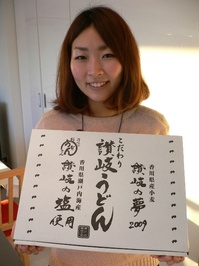 香川県産小麦
讃岐の夢
2009
こだわり
讃岐うどん
香川県瀬戸内海産
讃岐の塩
使用